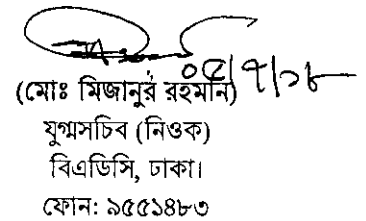 ০৫/৭/১৮
(মোঃ মিজানুর রহমান)
যুগ্মসচিব (নিওক)
বিএডিসি, ঢাকা।
ফোন: ৯৫৫১৪৮৩